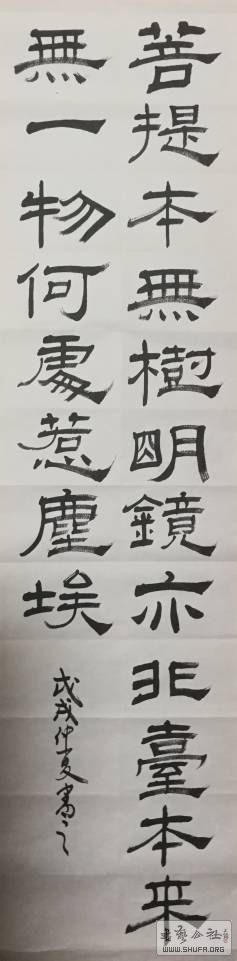 菩提本無樹明鏡亦非臺本来
無一物何處惹塵埃
戊戌仲夏書之
WWW.SHUFA.ORG